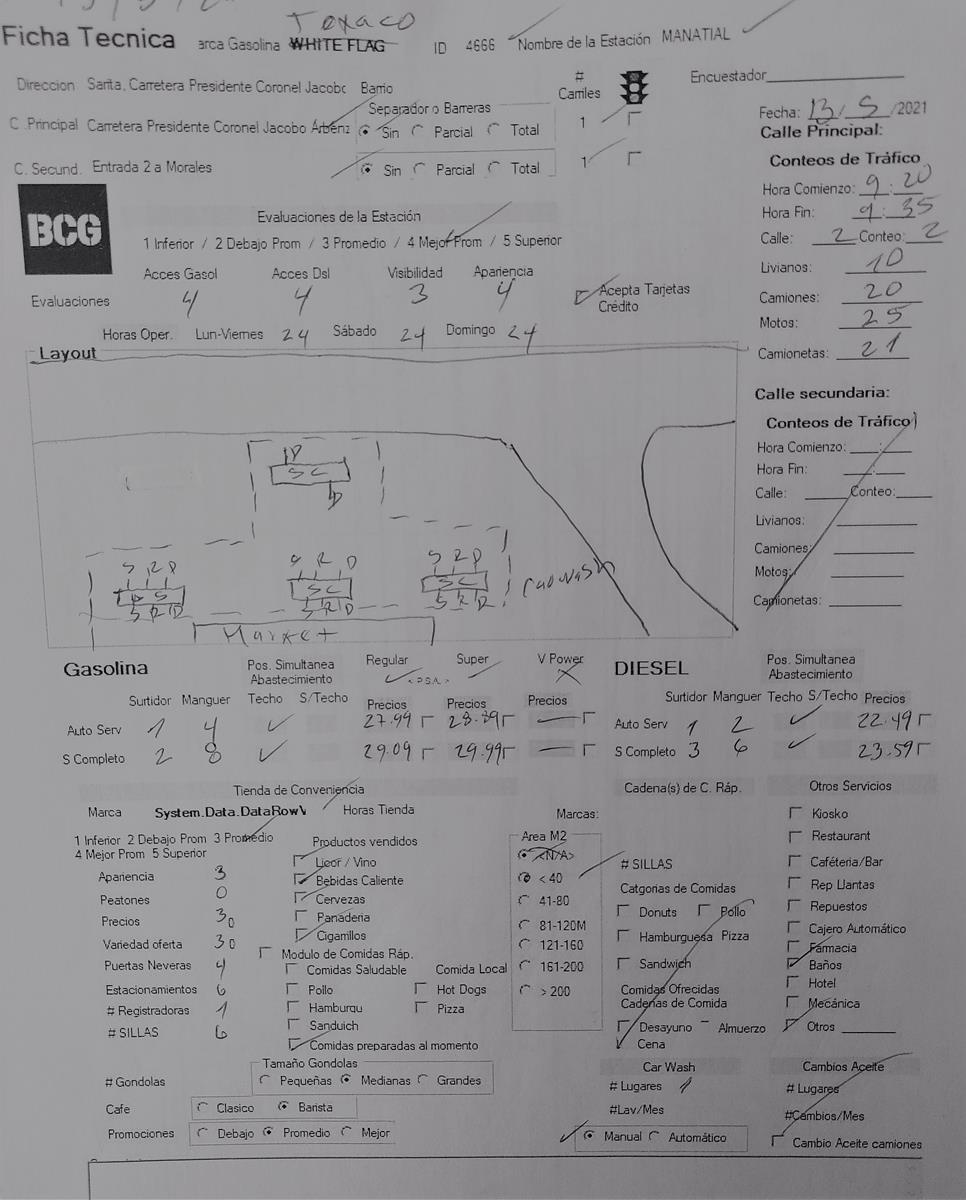 Texaco
Ficha Tecnica arca Gasolina WHITE FLAG ID 4666 Nombre de la Estación MANATIAL
Direccion Sarita, Carretera Presidente Coronel Jacobc Barrio
# Carriles
Encuestador
Separador o Barreras
Fecha: 13/5/2021
C .Principal Carretera Presidente Coronel Jacobo Árbenz Sin Parcial Total 1
Calle Principal:
C. Secund. Entrada 2 a Morales Sin Parcial Total 1
Conteos de Tráfico
Hora Comienzo: 9:20
Hora Fin: 9:35
Calle: 2 Conteo: 2
Livianos: 10
Camiones: 20
Motos: 25
Camionetas: 21
BCG
Evaluaciones de la Estación
1 Inferior / 2 Debajo Prom / 3 Promedio / 4 Mejor Prom / 5 Superior
Acces Gasol Acces Dsl Visibilidad Apariencia
Evaluaciones 4 4 3 4
Acepta Tarjetas
Crédito
Horas Oper. Lun-Viernes 24 Sábado 24 Domingo 24
Layout
Calle secundaria:
Conteos de Tráfico
Hora Comienzo: :
Hora Fin: :
Calle: Conteo:
Livianos:
Camiones:
Motos:
Camionetas:
D
SC
D
S R D S R D S R D
SC SC
S R D S R D S R D
Carwash
Market
Gasolina Pos. Simultanea Abastecimiento Regular Super V Power
Surtidor Manguer Techo S/Techo Precios Precios Precios
Auto Serv 1 4 27.99 28.89 —
S Completo 2 8 29.09 29.99 —
DIESEL Pos. Simultanea Abastecimiento
Surtidor Manguer Techo S/Techo Precios
Auto Serv 1 2 22.49
S Completo 3 6 23.59
Tienda de Conveniencia
Marca System.Data.DataRowV Horas Tienda
1 Inferior 2 Debajo Prom 3 Promedio
4 Mejor Prom 5 Superior
Apariencia 3
Peatones 0
Precios 30
Variedad oferta 30
Puertas Neveras 4
Estacionamientos 6
# Registradoras 1
# SILLAS 6
Productos vendidos
Licor / Vino
Bebidas Caliente
Cervezas
Panaderia
Cigarrillos
Modulo de Comidas Ráp.
Comidas Saludable Comida Local
Pollo Hot Dogs
Hamburqu Pizza
Sanduich
Comidas preparadas al momento
Marcas:
Area M2
<N/A>
< 40
41-80
81-120M
121-160
161-200
> 200
Cadena(s) de C. Ráp.
# SILLAS
Catgorias de Comidas
Donuts Pollo
Hamburguesa Pizza
Sandwich
Comidas Ofrecidas
Cadenas de Comida
Desayuno Almuerzo
Cena
Otros Servicios
Kiosko
Restaurant
Caféteria/Bar
Rep Llantas
Repuestos
Cajero Automático
Farmacia
Baños
Hotel
Mecánica
Otros
# Gondolas
Tamaño Gondolas
Pequeñas Medianas Grandes
Cafe Clasico Barista
Promociones Debajo Promedio Mejor
Car Wash
# Lugares 1
#Lav/Mes
Manual Automático
Cambios Aceite
# Lugares
#Cambios/Mes
Cambio Aceite camiones